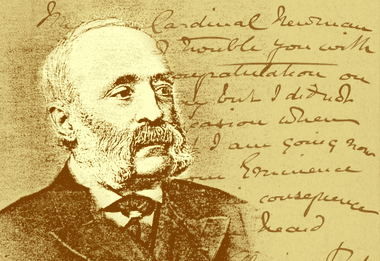 Cardinal Newman
I trouble you with
congratulation on
but I did not
when
I am going now
Eminence
consequence
heard